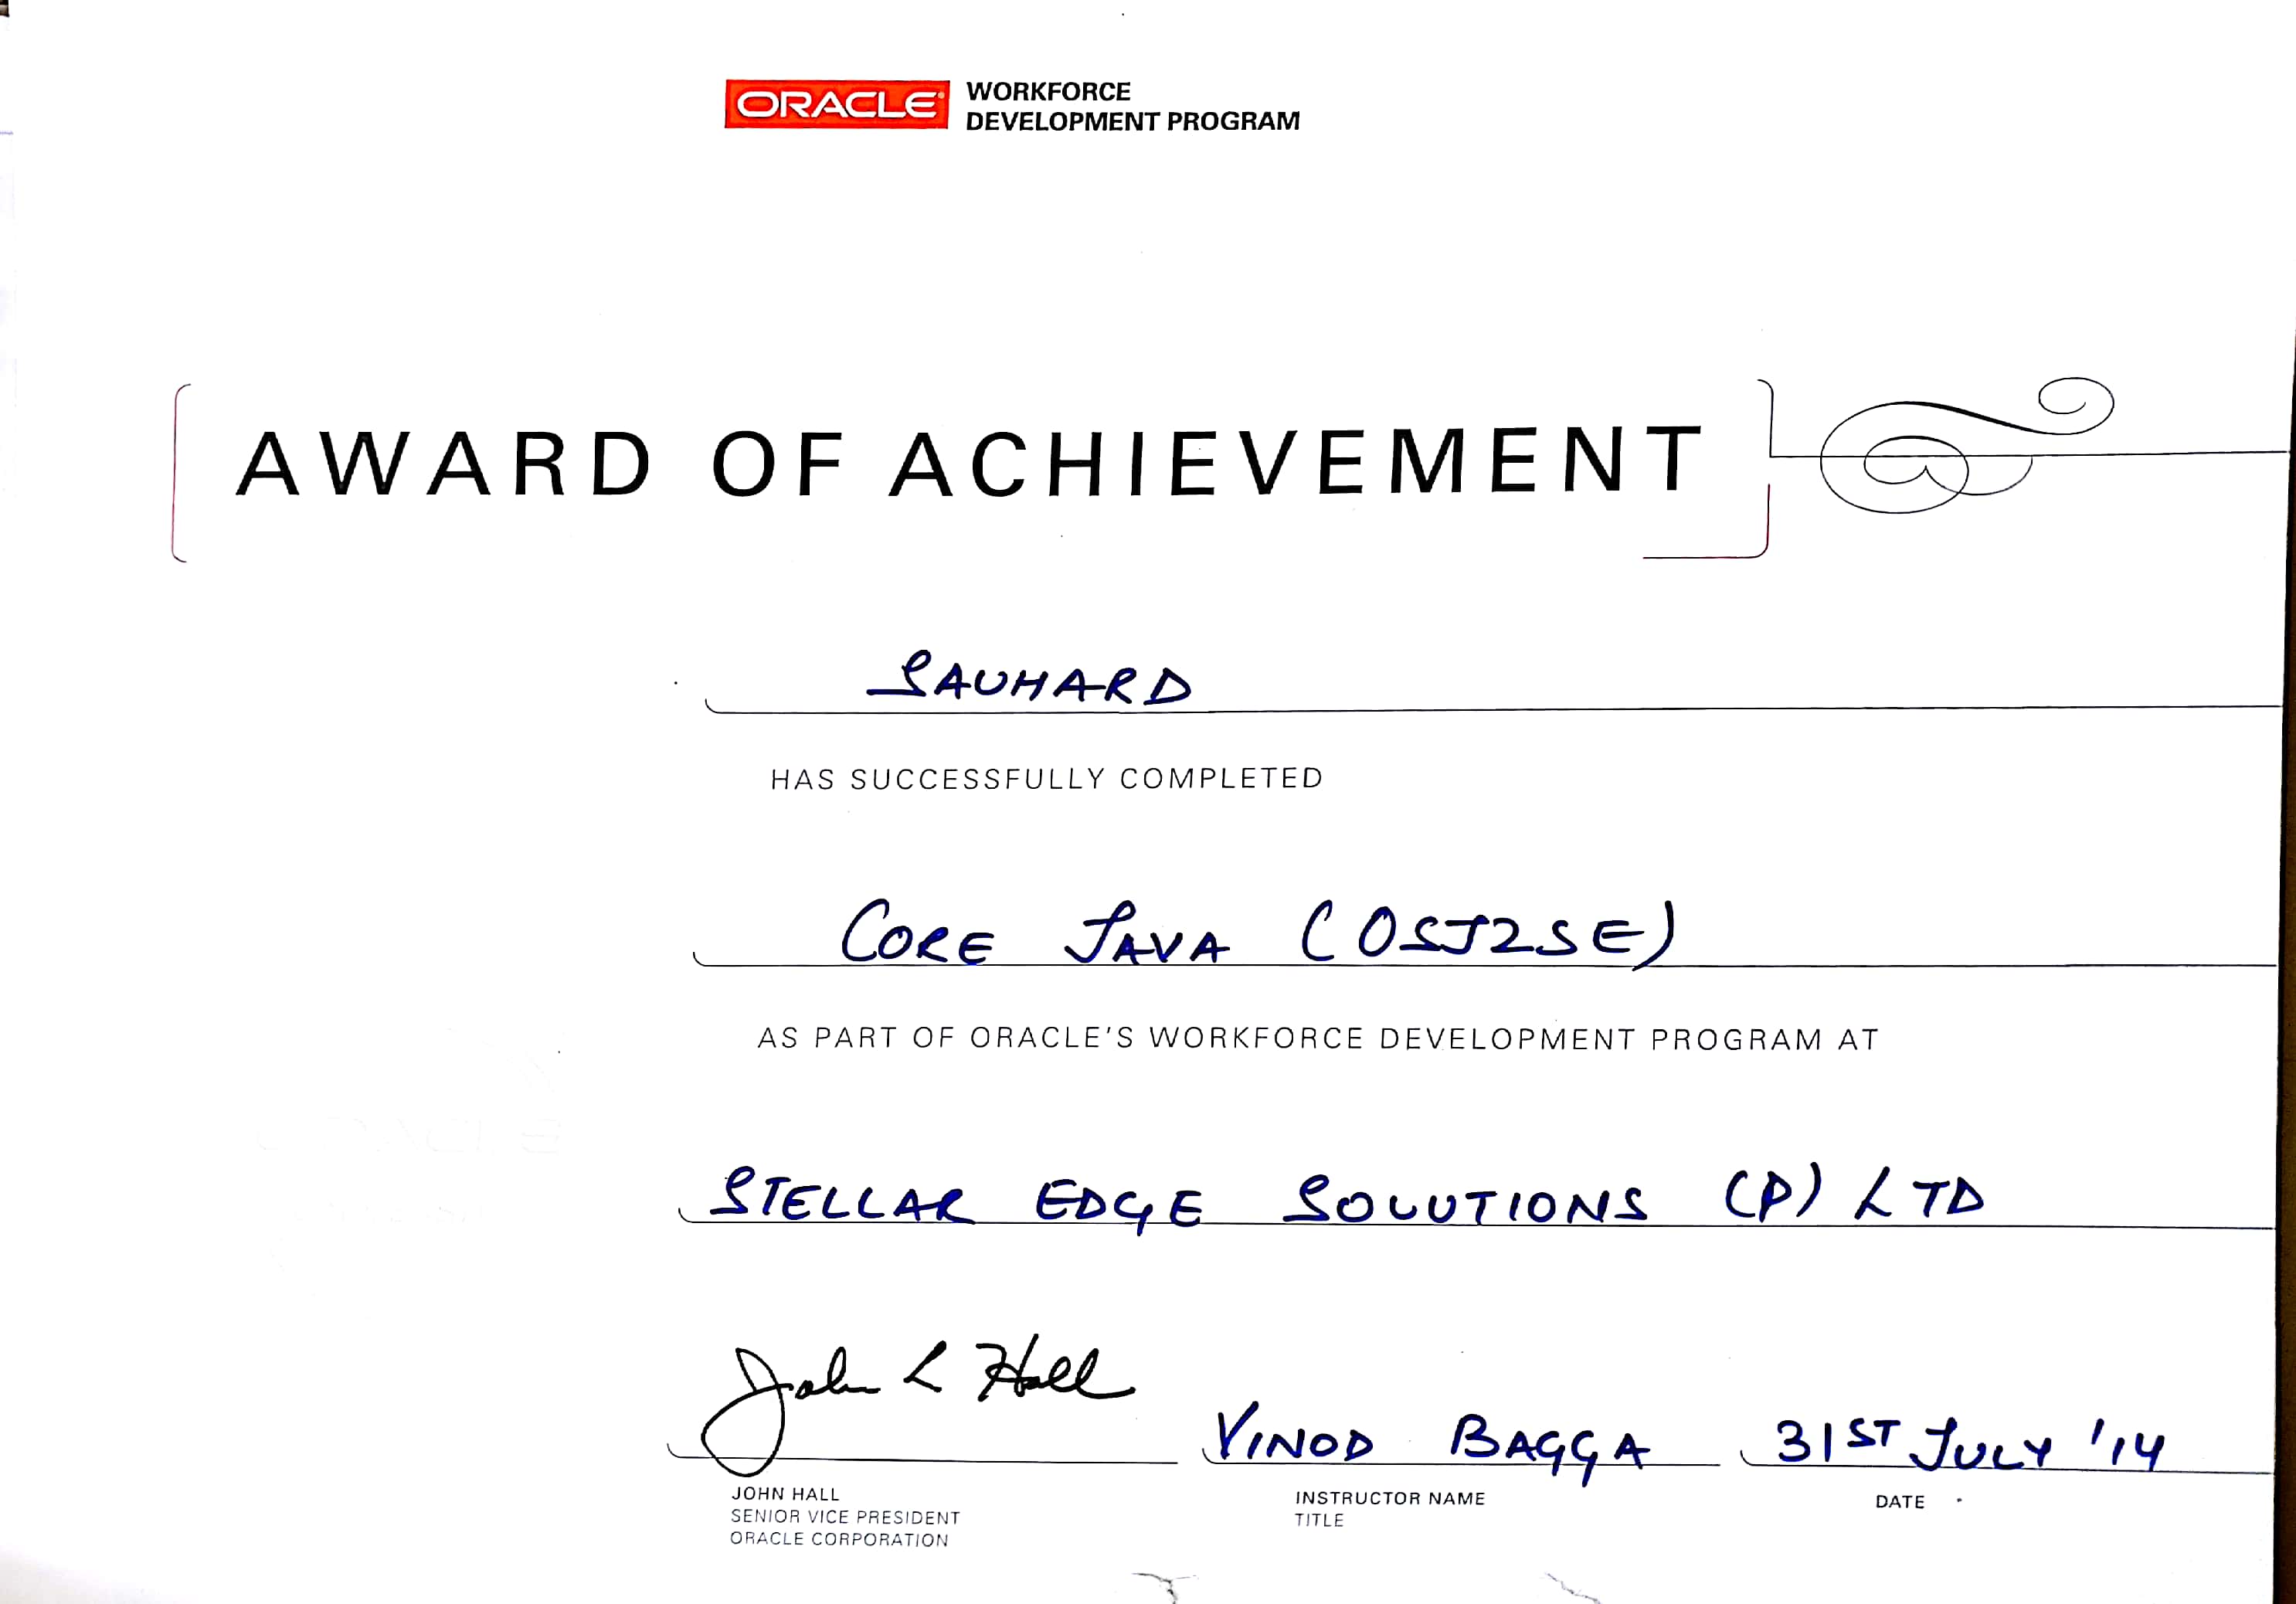 ORACLE® WORKFORCE
DEVELOPMENT PROGRAM
AWARD OF ACHIEVEMENT
SAUHARD
HAS SUCCESSFULLY COMPLETED
CORE JAVA (OSJ2SE)
AS PART OF ORACLE'S WORKFORCE DEVELOPMENT PROGRAM AT
STELLAR EDGE SOLUTIONS (P) LTD
John L Hall
VINOD BAGGA
31ST JULY '14
JOHN HALL
SENIOR VICE PRESIDENT
ORACLE CORPORATION
INSTRUCTOR NAME
TITLE
DATE